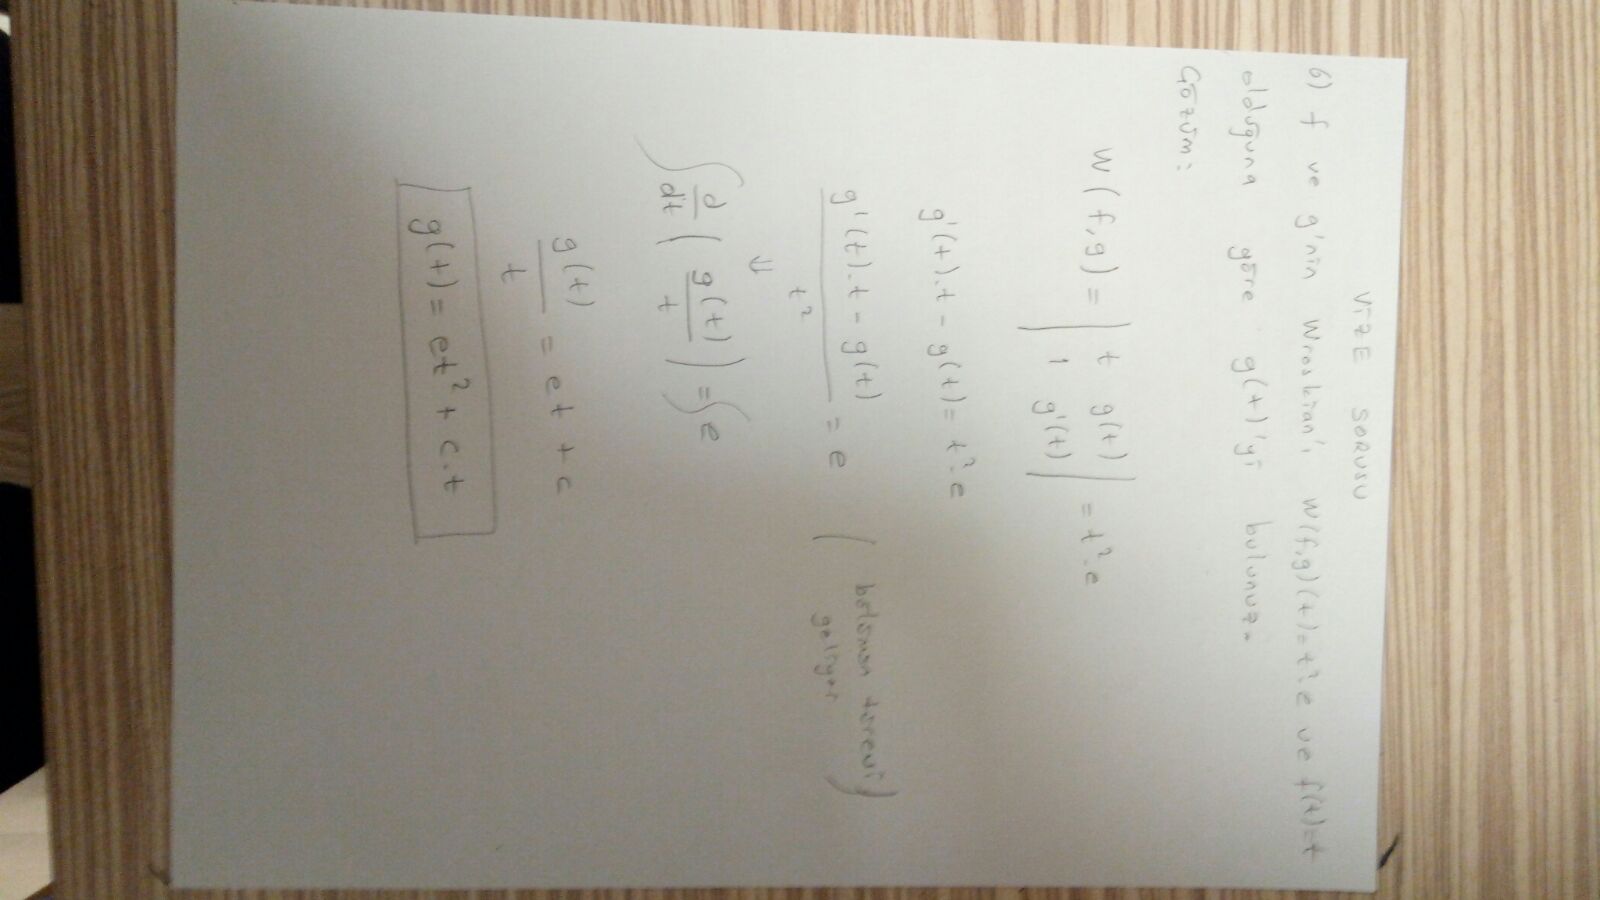 VİZE SORUSU
6) f ve g'nin Wroskian'ı W(f,g)(t)=t².e ve f(t)=t
olduğuna göre g(t)'yi bulunuz.
Çözüm:
W(f,g) = | t g(t) | = t².e
| 1 g'(t) |
g'(t).t - g(t) = t².e
(g'(t).t - g(t)) / t² = e ( bölümün türevi
geliyor )
⇓
∫ d/dt ( g(t)/t ) = ∫ e
g(t)/t = et + c
g(t) = et² + c.t